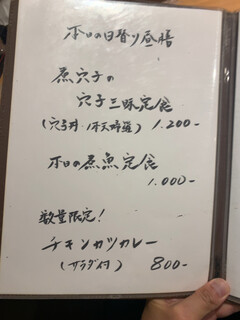 本日の日替り昼膳
煮穴子の
穴子三昧定食
(穴子丼・半天ぷら) 1.200-
本日の煮魚定食
1.000-
数量限定!
チキンカツカレー
(サラダ付) 800-